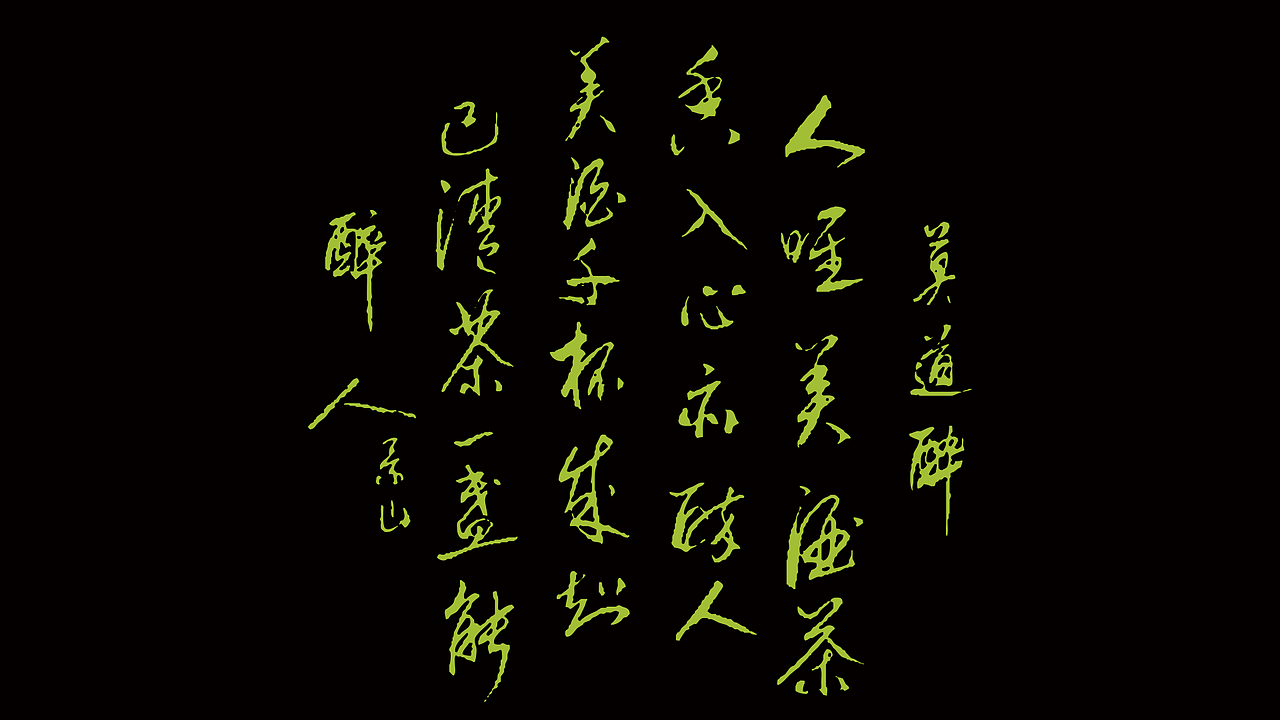 莫道醉
人唯美酒茶
香入心亦醉人
美酒千杯成知
己清茶一盏能
醉人